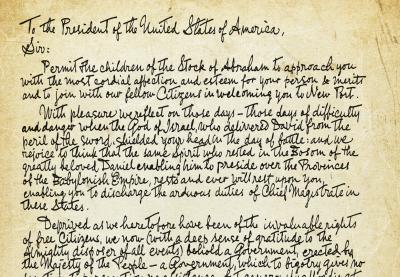 To the President of the United States of America,
Sir:
Permit the children of the Stock of Abraham to approach you
with the most cordial affection and esteem for your person & merits
and to join with our fellow Citizens in welcoming you to New Port.
With pleasure we reflect on those days - those days of difficulty
and danger when the God of Israel, who delivered David from the
peril of the sword, shielded your head in the day of battle: and we
rejoice to think that the same Spirit who rested in the Bosom of the
greatly beloved Daniel enabling him to preside over the Provinces
of the Babylonish Empire, rests and ever will rest upon you
enabling you to discharge the arduous duties of Chief Magistrate in
these States.
Deprived as we heretofore have been of the invaluable rights
of free Citizens, we now (with a deep sense of gratitude to the
Almighty disposer of all events) behold a Government, erected by
the Majesty of the People - a Government, which to bigotry gives no